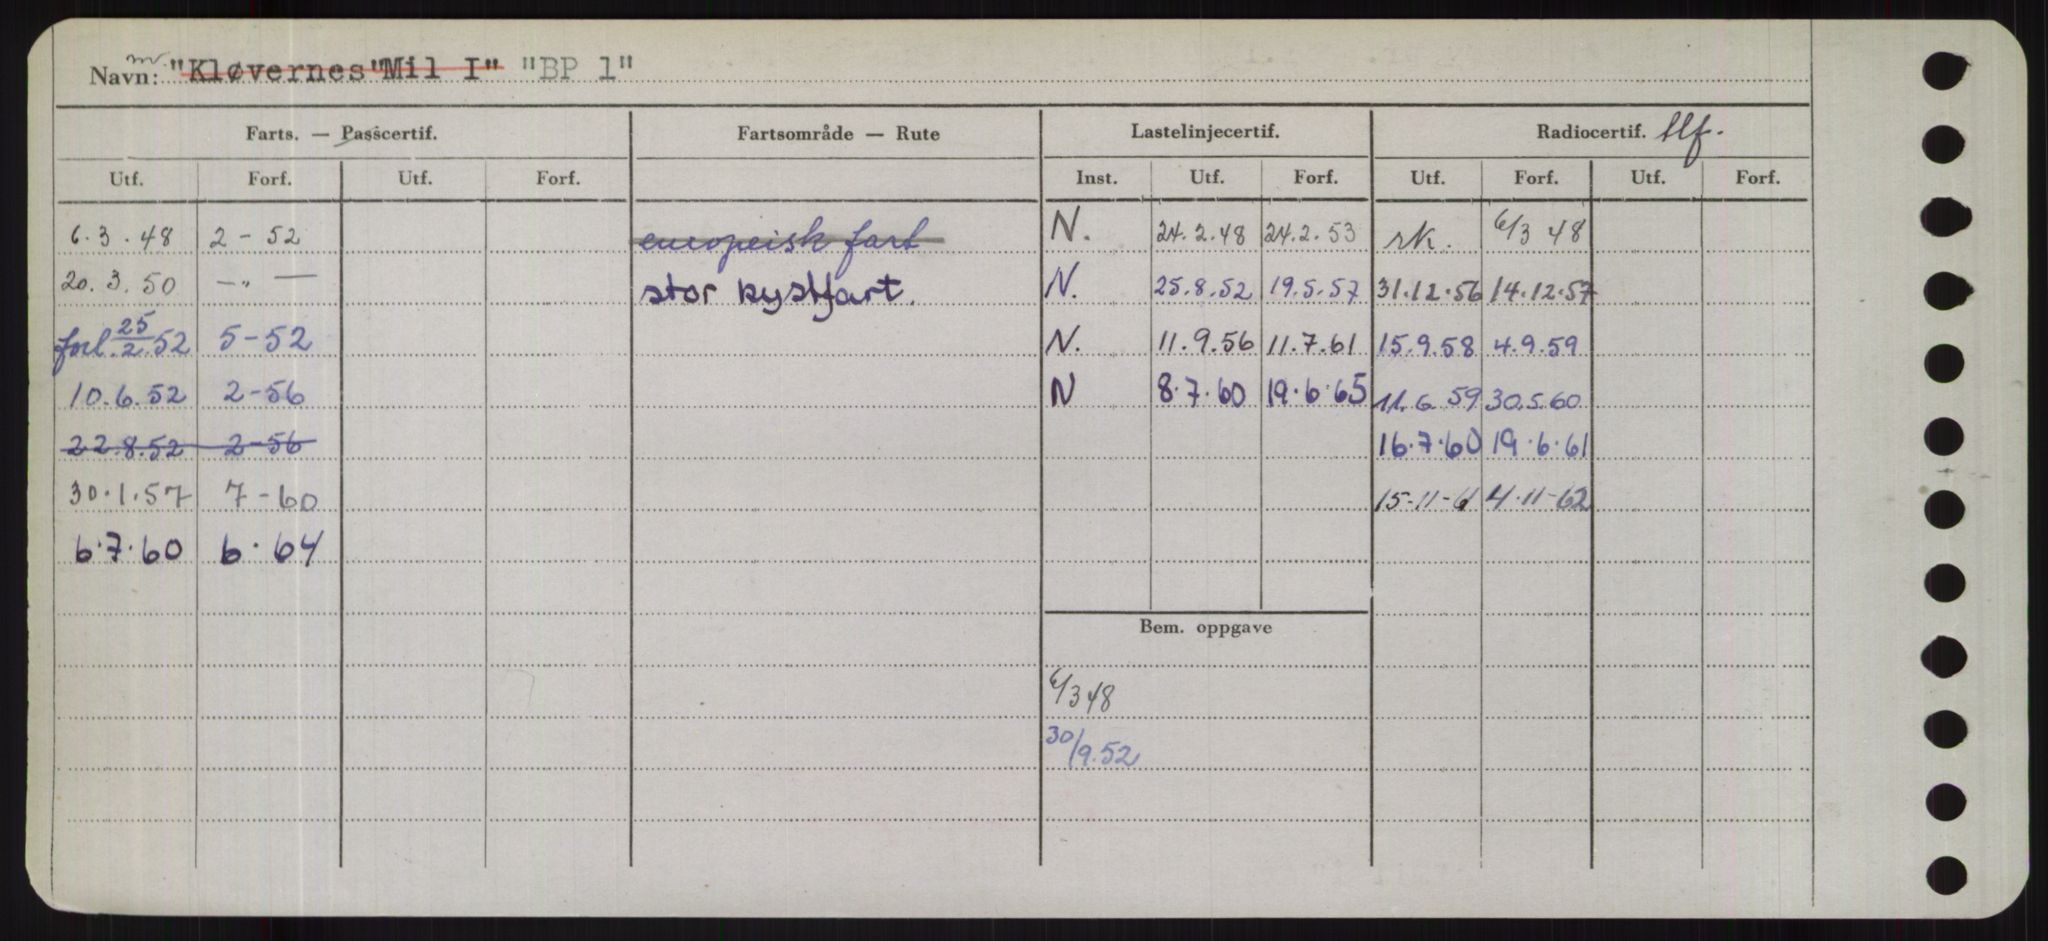 Navn: m "Kløvernes "Mil I" "BP 1"
Farts. — Passcertif. Fartsområde — Rute Lastelinjecertif. Radiocertif. tlf.
Utf. Forf. Utf. Forf. Inst. Utf. Forf. Utf. Forf. Utf. Forf.
6.3.48 2-52 europeisk fart N. 24.2.48 24.2.53 rk. 6/3 48
20.3.50 -"- stor kystfart. N. 25.8.52 19.5.57 31.12.56 14.12.57
forl. 25/2.52 5-52 N. 11.9.56 11.7.61 15.9.58 4.9.59
10.6.52 2-56 N 8.7.60 19.6.65 11.6.59 30.5.60
22.8.52 2-56 16.7.60 19.6.61
30.1.57 7-60 15-11-61 4-11-62
6.7.60 6.64
Bem. oppgave
6/3 48
30/9.52